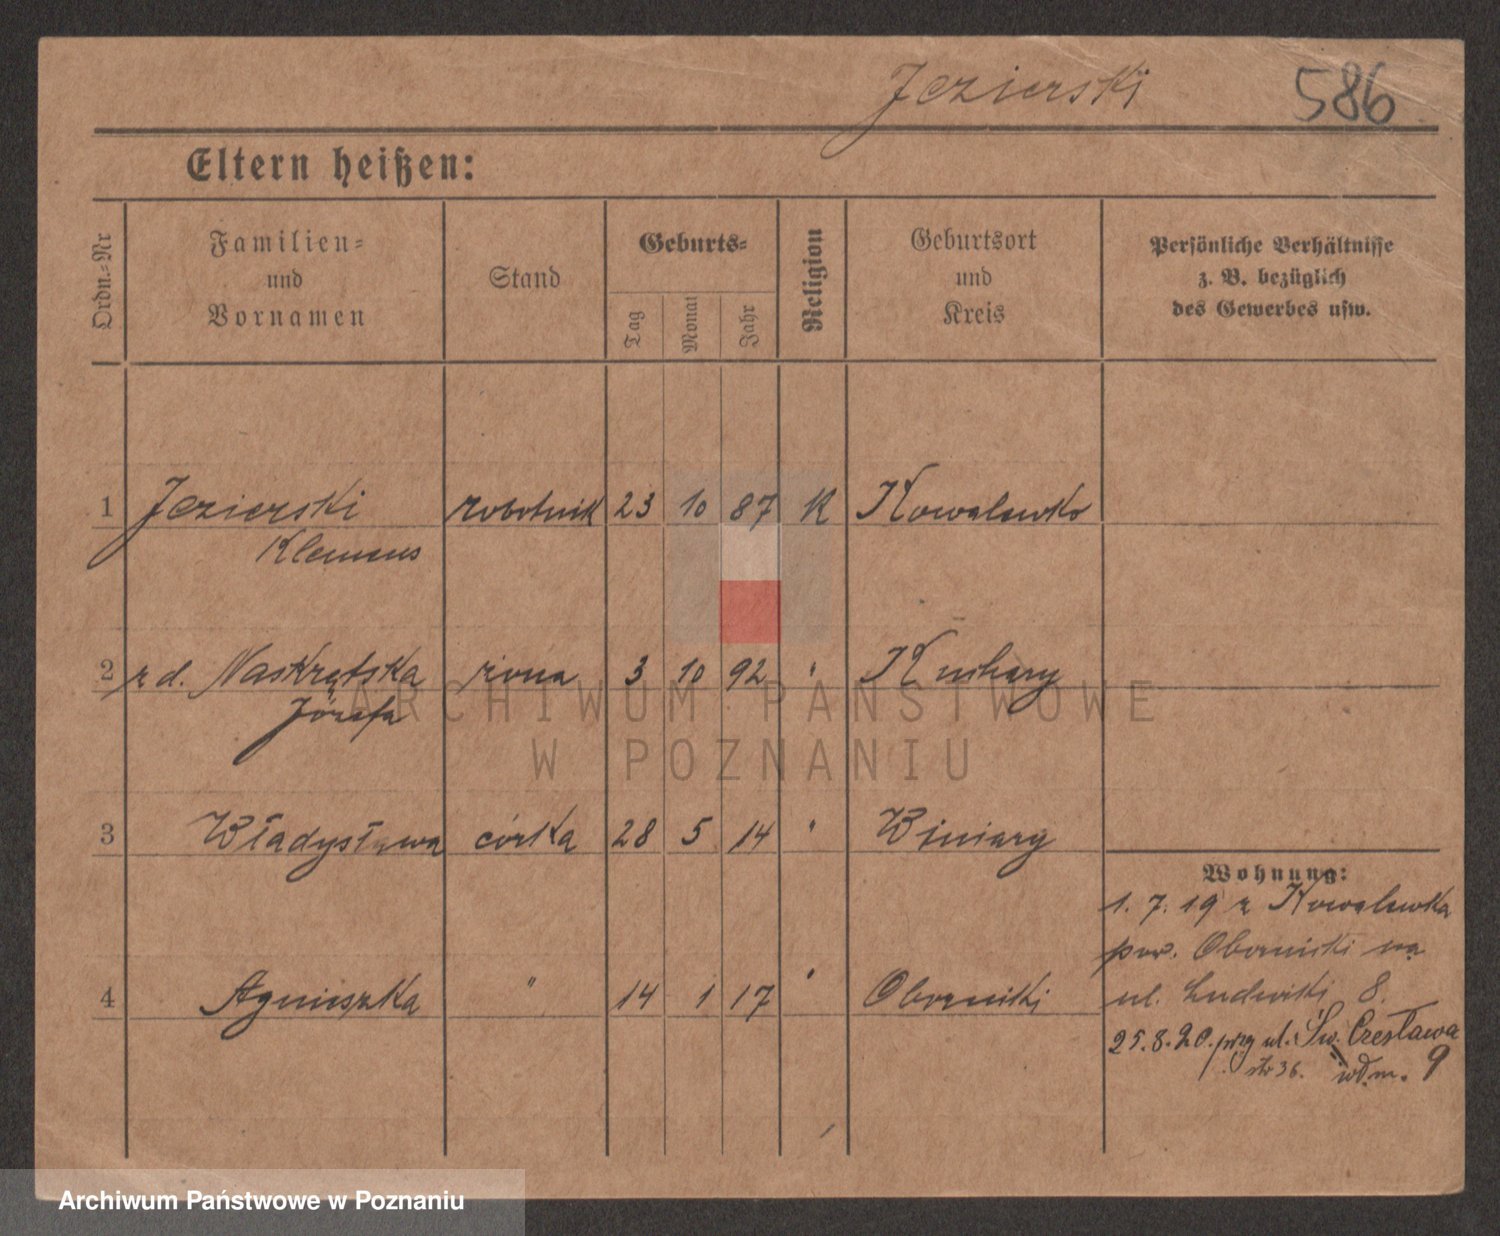 Jezierski 586
Eltern heißen:
Ordn.=Nr
Familien=
und
Vornamen
Stand
Geburts=
Tag
Monat
Jahr
Religion
Geburtsort
und
Kreis
Persönliche Verhältnisse
z. B. bezüglich
des Gewerbes usw.
1 Jezierski robotnik 23 10 87 K Kowalewko
Klemens
2 z d. Naskrętska żona 3 10 92 " Kuchary
Józefa
3 Władysława córka 28 5 14 " Winiary
4 Agnieszka " 14 1 17 " Oborniki
Wohnung:
1. 7. 19 z Kowalewka
pow. Oborniki na
ul. Ludwiki 8.
25.8.20. przy ul. Św. Czesława 9
str 36.
ARCHIWUM PAŃSTWOWE
W POZNANIU
Archiwum Państwowe w Poznaniu